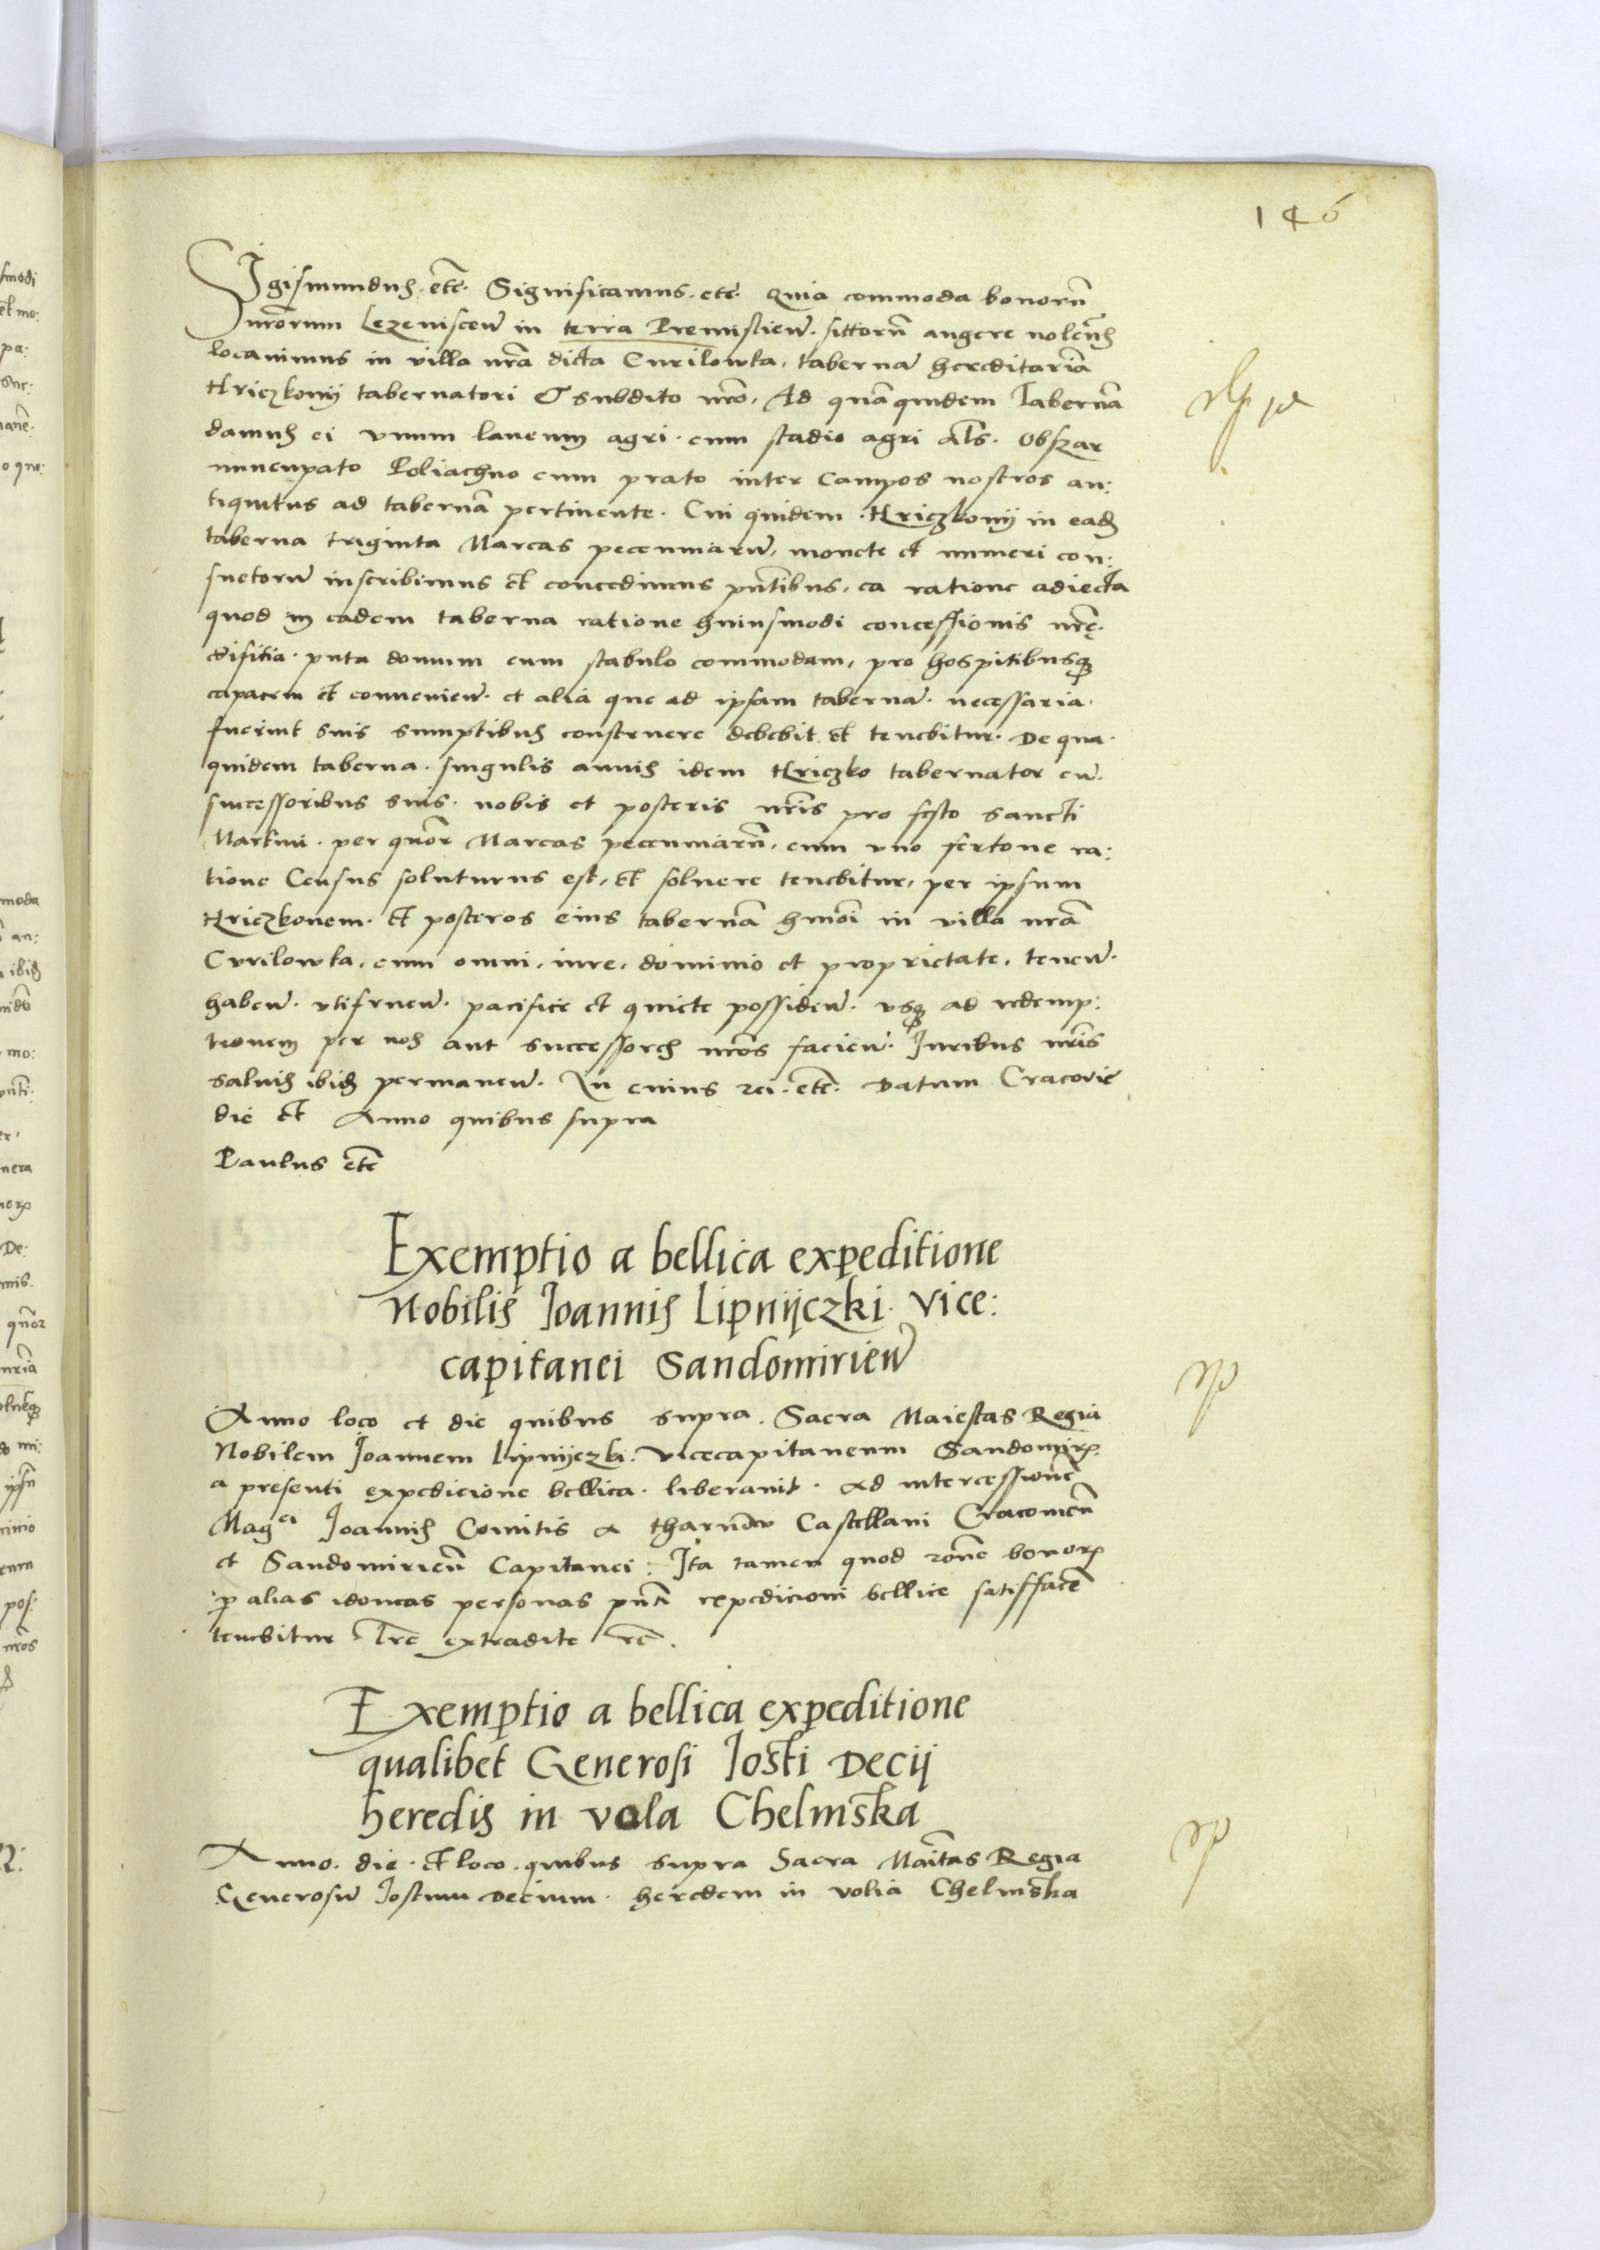 146
Sigismundus. etc. Significamus. etc. Quia commoda bonorū
nr̄orum Lezeniscen̄ in terra Premislien̄. sittorū augere nolen̄s
locauimus in villa nr̄a dicta Curilowka, tabernā hereditariā
Hriczkonij tabernatori & subdito nr̄o, Ad quā quidem Tabernā
damus ei vnum laneum agri. cum stadio agri al̄s. Obszar
nuncupato Poliachno cum prato inter Campos nostros an:
tiquitus ad tabernā pertinente. Cui quidem. Hriczkonij in eadē
taberna triginta Marcas pecuniarū, monete et numeri con:
suetorū inscribimus et concedimus pn̄tibus, ea ratione adiecta
quod in eadem taberna ratione huiusmodi concessionis nr̄ę.
edifitia. puta domum cum stabulo commodam, pro hospitibusq̄
capacem et conuenien̄. et alia que ad ipsam tabernā. necessaria.
fuerint suis sumptibus construere debebit et tenebitur. De qua.
quidem taberna. singulis annis idem Hriczko tabernator cū.
successoribus suis. nobis et posteris nr̄is pro festo sancti
Martini. per quor̄ Marcas pecuniarū, cum vno fertone ra:
tione Census soluturus est, et soluere tenebitur, per ipsum
Hriczkonem. et posteros eius tabernā hm̄oi in villa nr̄a
Curilowka, cum omni, iure, dominio et proprietate, tenen̄.
haben̄. vtifruen̄. pacifice et quiete possiden̄. vsq̄ ad redemp:
tionem per nos aut successores nr̄os facien̄. Iuribus nr̄is
saluis ibidē permanen̄. In cuius rei. etc̄. Datum Cracovie
die et Anno quibus supra
Paulus etc̄
Exemptio a bellica expeditione
Nobilis Joannis Lipnijczki. vice:
capitanei Sandomirien̄
Anno loco et die quibus supra. Sacra Maiestas Regia
Nobilem Joannem Lipnijczki. Vicecapitaneum Sandomir̄.
a presenti expedicione bellica. liberauit. Ad intercessionē
Mag^ci Joannis Comitis a tharnow Castellani Cracouien̄
et Sandomirien̄ Capitanei: Ita tamen quod ron̄e bonor̄
p̄ alias idoneas personas pn̄ti expedicioni bellice satisfacē
tenebitur Lr̄e extradite re̅.
Exemptio a bellica expeditione
qualibet Generosi Josti Decij
heredis in vola Chelmska
Anno. die. et loco. quibus supra Sacra Maītas Regia
Generosū Jostum Decium. heredem in volia Chelmska